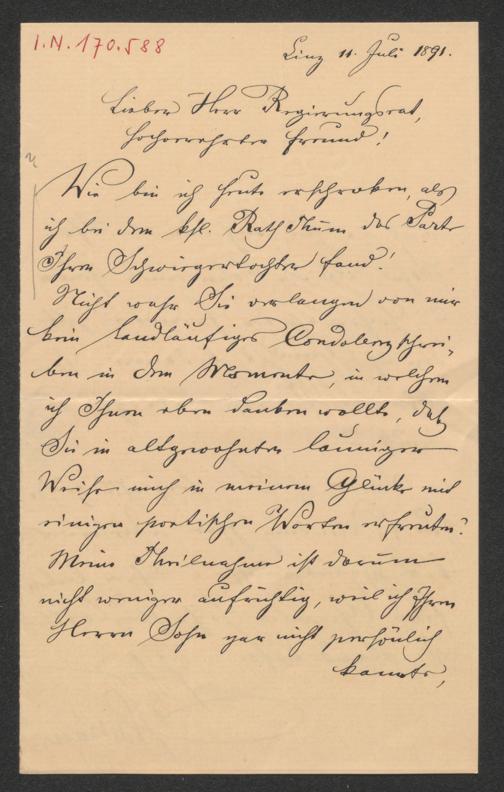 I.N. 170.588
Linz 11. Juli 1891.
Lieber Herr Regierungsrat,
hochverehrter Freund!
Wie bin ich heute erschroken, als
ich bei dem ksl. Rath Thum das Parte
Ihrer Schwiegertochter fand!
Nicht wahr Sie verlangen von mir
kein landläufiges Condolenzschrei-
ben in dem Momente, in welchem
ich Ihnen eben danken wollte, daß
Sie in altgewohnter launiger
Weise mich in meinem Glücke mit
einigen poetischen Worten erfreuten?
Meine Theilnahme ist darum
nicht weniger aufrichtig, weil ich Ihren
Herrn Sohn gar nicht persönlich
kannte,